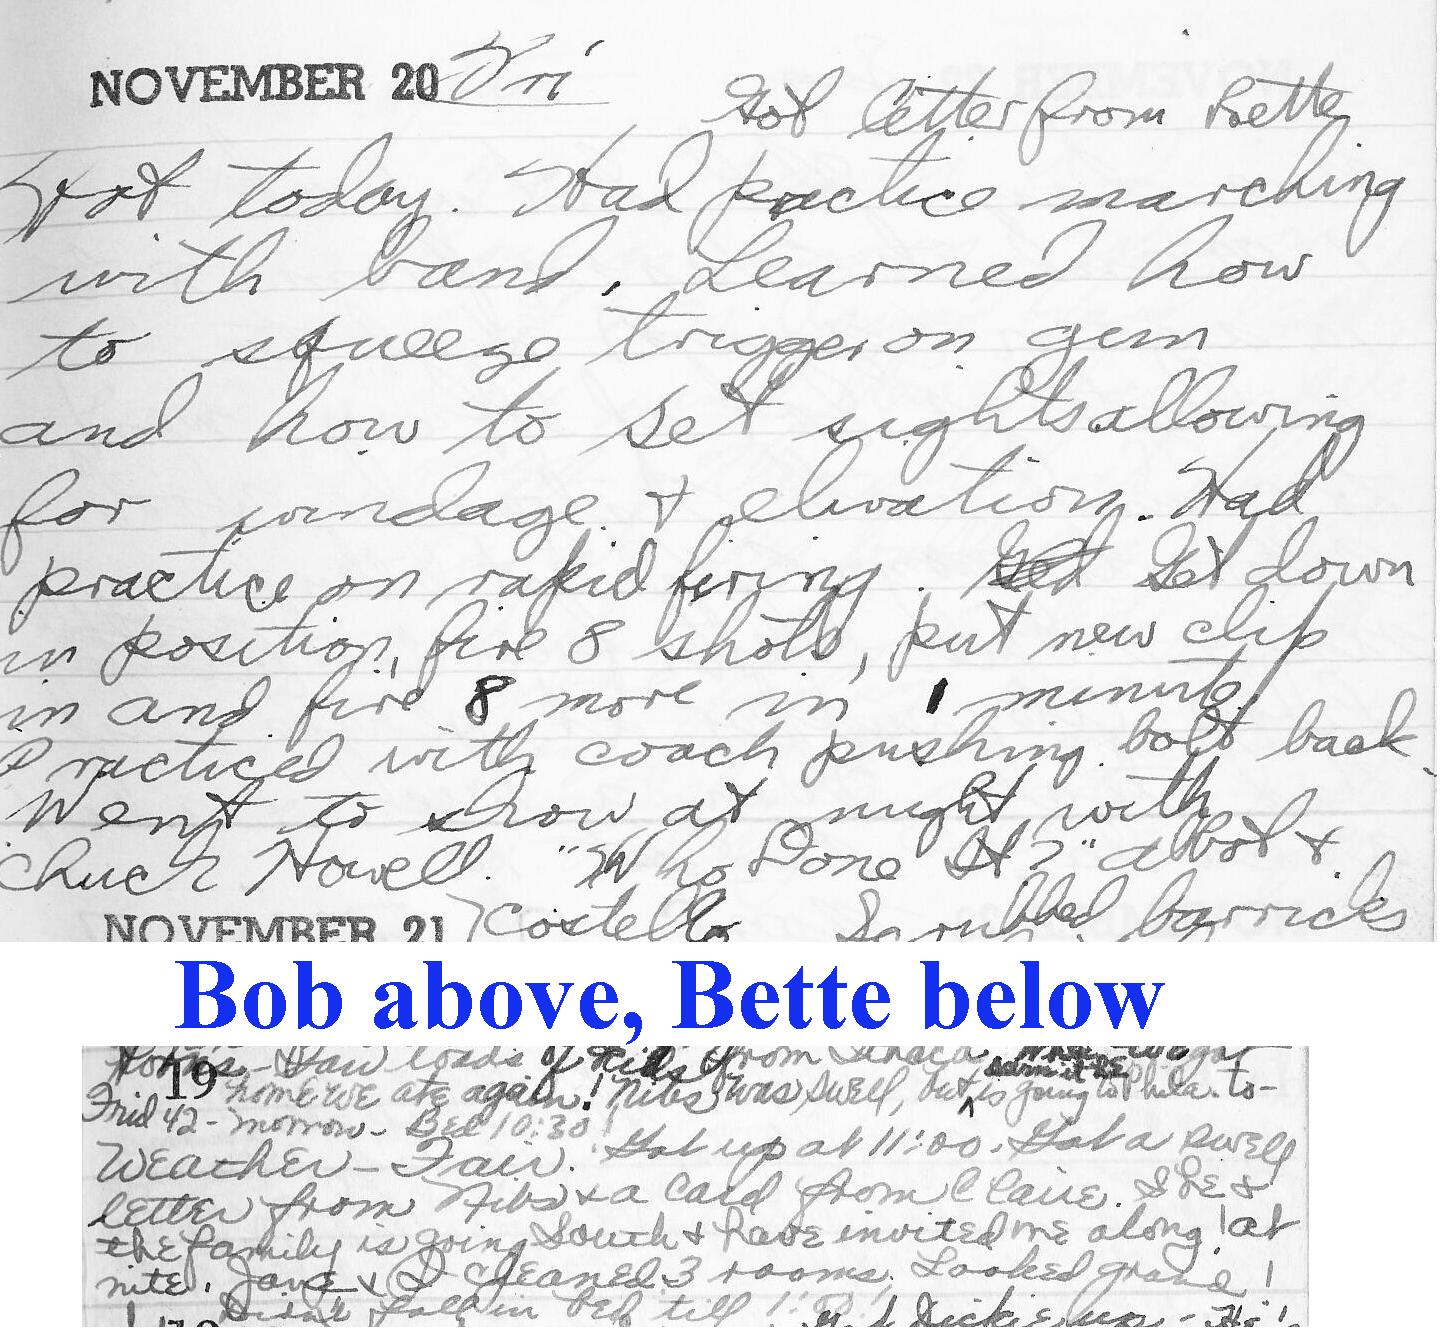 NOVEMBER 20 Fri Got letter from Bette
Hot today. Had practice marching
with band. Learned how
to squeeze trigger on gun
and how to set sights allowing
for windage & elivation. Had
practice on rapid firing. Get down
in position, fire 8 shots, put new clip
in and fire 8 more in 1 minute,
Practiced with coach pushing bolt back.
Went to show at night with
Chuck Howell. "Who Done It?" abbot &
NOVEMBER 21 Costello Scrubbed barricks
Bob above, Bette below
Saw loads of kids from Ithaca
19 home we ate again! Nibs was swell, but is going to Phila. to-
Frid 42 - morrow - Bed 10:30!
Weather - Fair. Got up at 11:00. Got a swell
letter from Nibs & a card from Claire. She &
the family is going South & have invited me along! at
nite. Jane & I cleaned 3 rooms. Looked grand!
Didn't fall in bed till
Dickie up -